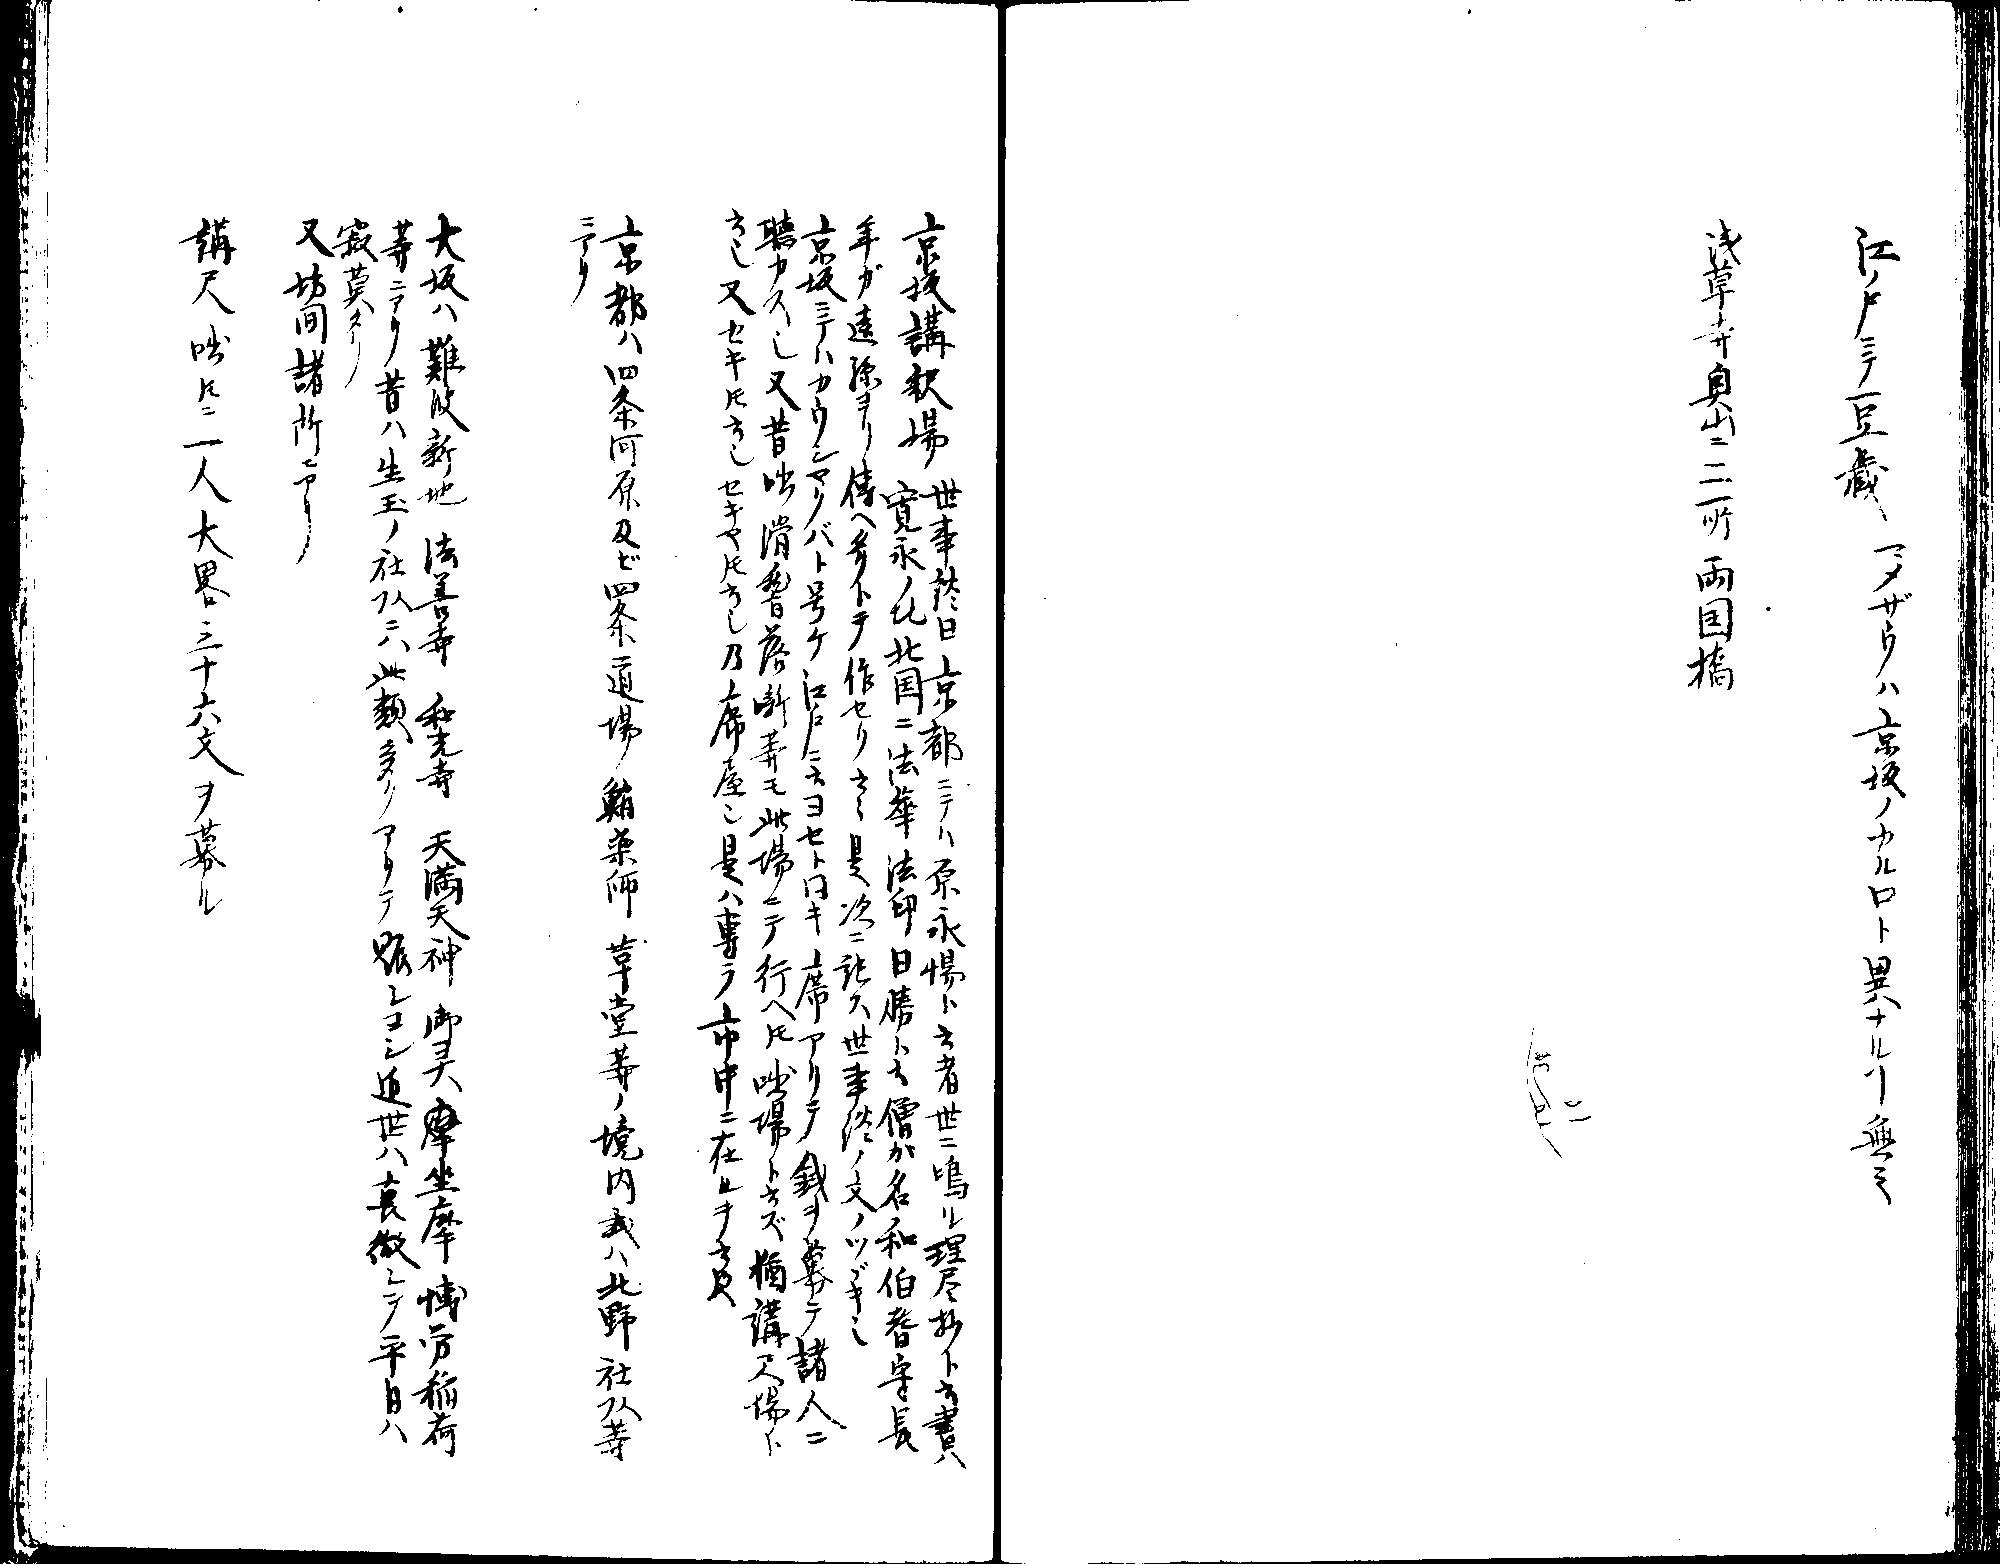 江ノ戸ニテ豆蔵 マメザウハ京坂ノカル口ト異ナルヿ無シ
浅草寺奥山ニ二三所 両国橋
京坂講釈場 世事談曰京都ニテハ原永惕ト云者世ニ鳴ル理尽抄ト云書ハ
寛永ノ比北国ニ法華法印日勝ト云僧が名和伯耆守長
年ガ遠孫ヨリ傳ヘ
京坂ニテハカウシヤクバト号ケ江戸ニテヨセト曰キ席アリテ銭ヲ募テ諸人ニ
聴カス也又昔咄滑稽落噺等モ此場ニテ行ヘ𪜈咄場ト云ズ猶講尺場ト
云也又セキ𪜈云也セキヤ𪜈云也乃席屋也是ハ専ラ市中ニ在ルヲ云
京都ハ四条河原及ビ四条道場 蛸薬師 草堂等ノ境内或ハ北野社頭等
ニアリ
大坂ハ難波新地 法善寺 和光寺 天満天神 御霊 座摩 博労稲荷
等ニアリ昔ハ生玉ノ社頭ニハ此類多クアリテ賑シヨシ近世ハ衰微シテ平日ハ
寂莫タリ
又坊間諸所ニアリ
講尺咄𪜈ニ一人大畧三十六文ヲ募ル